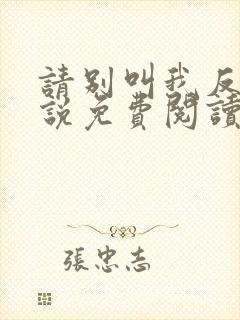 請別叫我反
說免費閱讀
張忠志